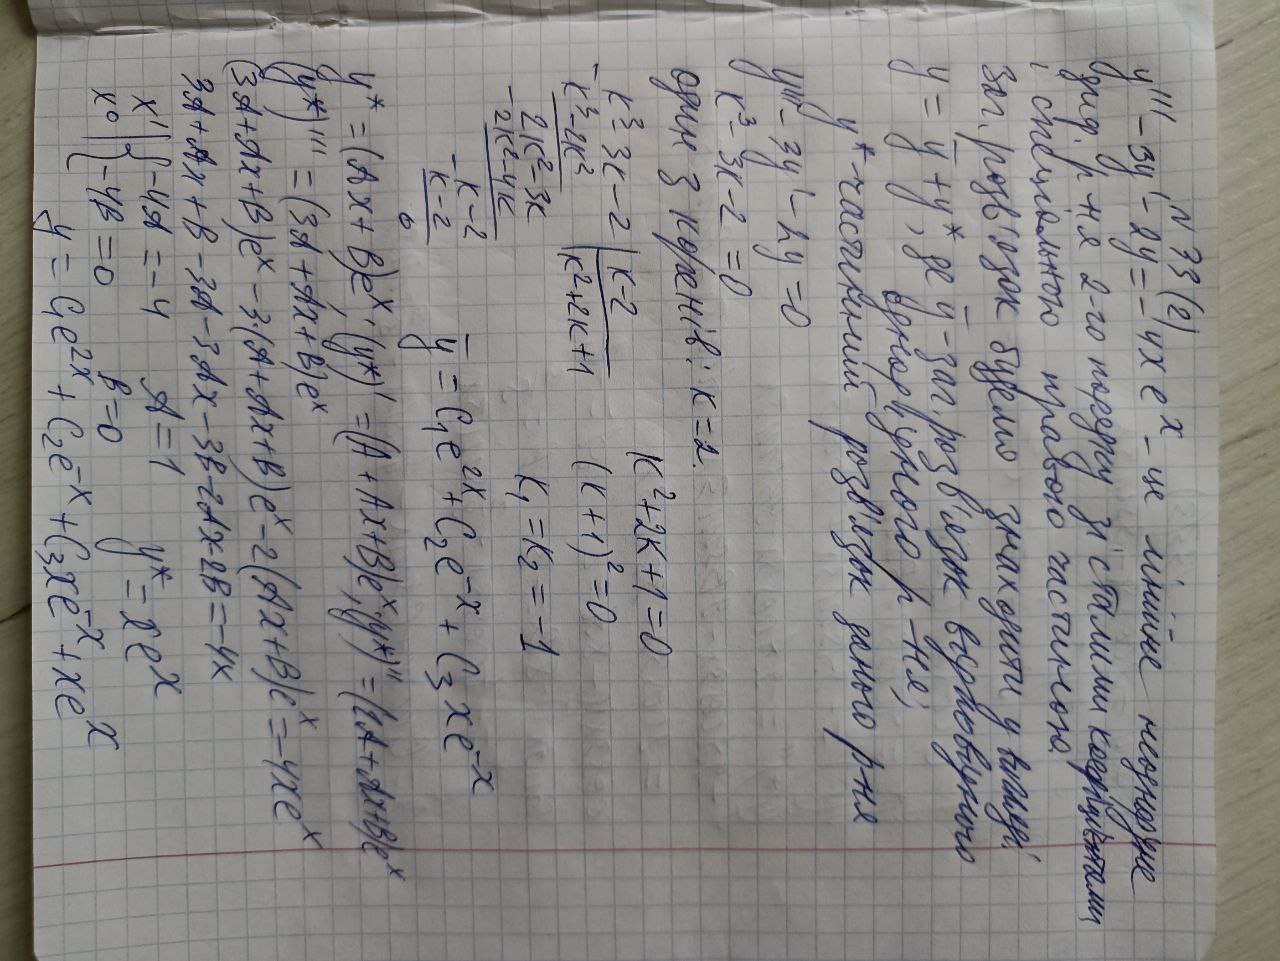 N 33 (2)
y''' - 3y' - 2y = -4x e^x - це лінійне неоднорідне
диф. р-ня 2-го порядку зі сталими коефіцієнтами
і спеціальною правою частиною.
Заг. розв'язок будемо знаходити у вигляді:
y = ȳ + y*, де ȳ - заг. розв'язок відповідного
однорідного р-ня;
y* - частинний розв'язок даного р-ня
y''' - 3y' - 2y = 0
k³ - 3k - 2 = 0
один з коренів: k = 2.
k³ - 3k - 2 | k - 2
- k³ - 2k² | k² + 2k + 1
2k² - 3k
- 2k² - 4k
k - 2
- k - 2
0
k² + 2k + 1 = 0
(k + 1)² = 0
k₁ = k₂ = -1
ȳ = C₁e^{2x} + C₂e^{-x} + C₃xe^{-x}
y* = (Ax + B)e^x; (y*)' = (A + Ax + B)e^x; (y*)'' = (2A + Ax + B)e^x
(y*)''' = (3A + Ax + B)e^x
(3A + Ax + B)e^x - 3·(A + Ax + B)e^x - 2(Ax + B)e^x = -4xe^x
3A + Ax + B - 3A - 3Ax - 3B - 2Ax - 2B = -4x
x¹ | { -4A = -4 A = 1 y* = xe^x
x⁰ | { -4B = 0 B = 0
y = C₁e^{2x} + C₂e^{-x} + C₃xe^{-x} + xe^x